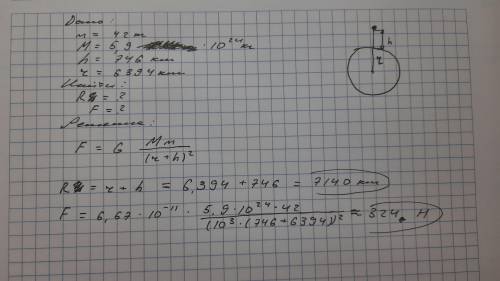 Дано:
m = 42 т
M = 5,9 · 10²⁴ кг
h = 746 km
r = 6394 km
Найти:
R = ?
F = ?
Решение:
F = G Mm / (r + h)²
R = r + h = 6,394 + 746 = 7140 km
F = 6,67 · 10⁻¹¹ · 5,9 · 10²⁴ · 42 / (10³ · (746 + 6394))² ≈ 324 Н
h
r